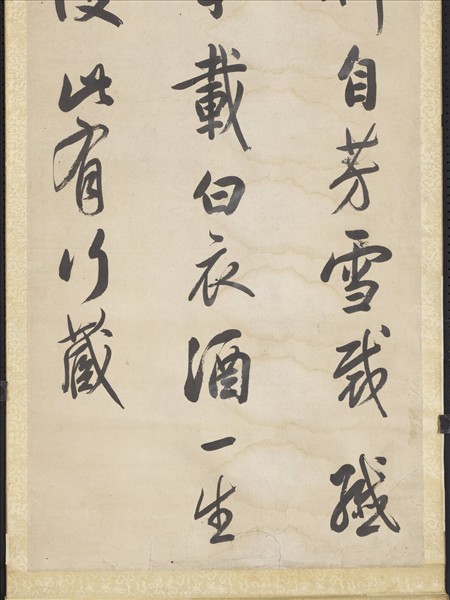 自芳雪裁纖
載白衣酒一生
此有行藏